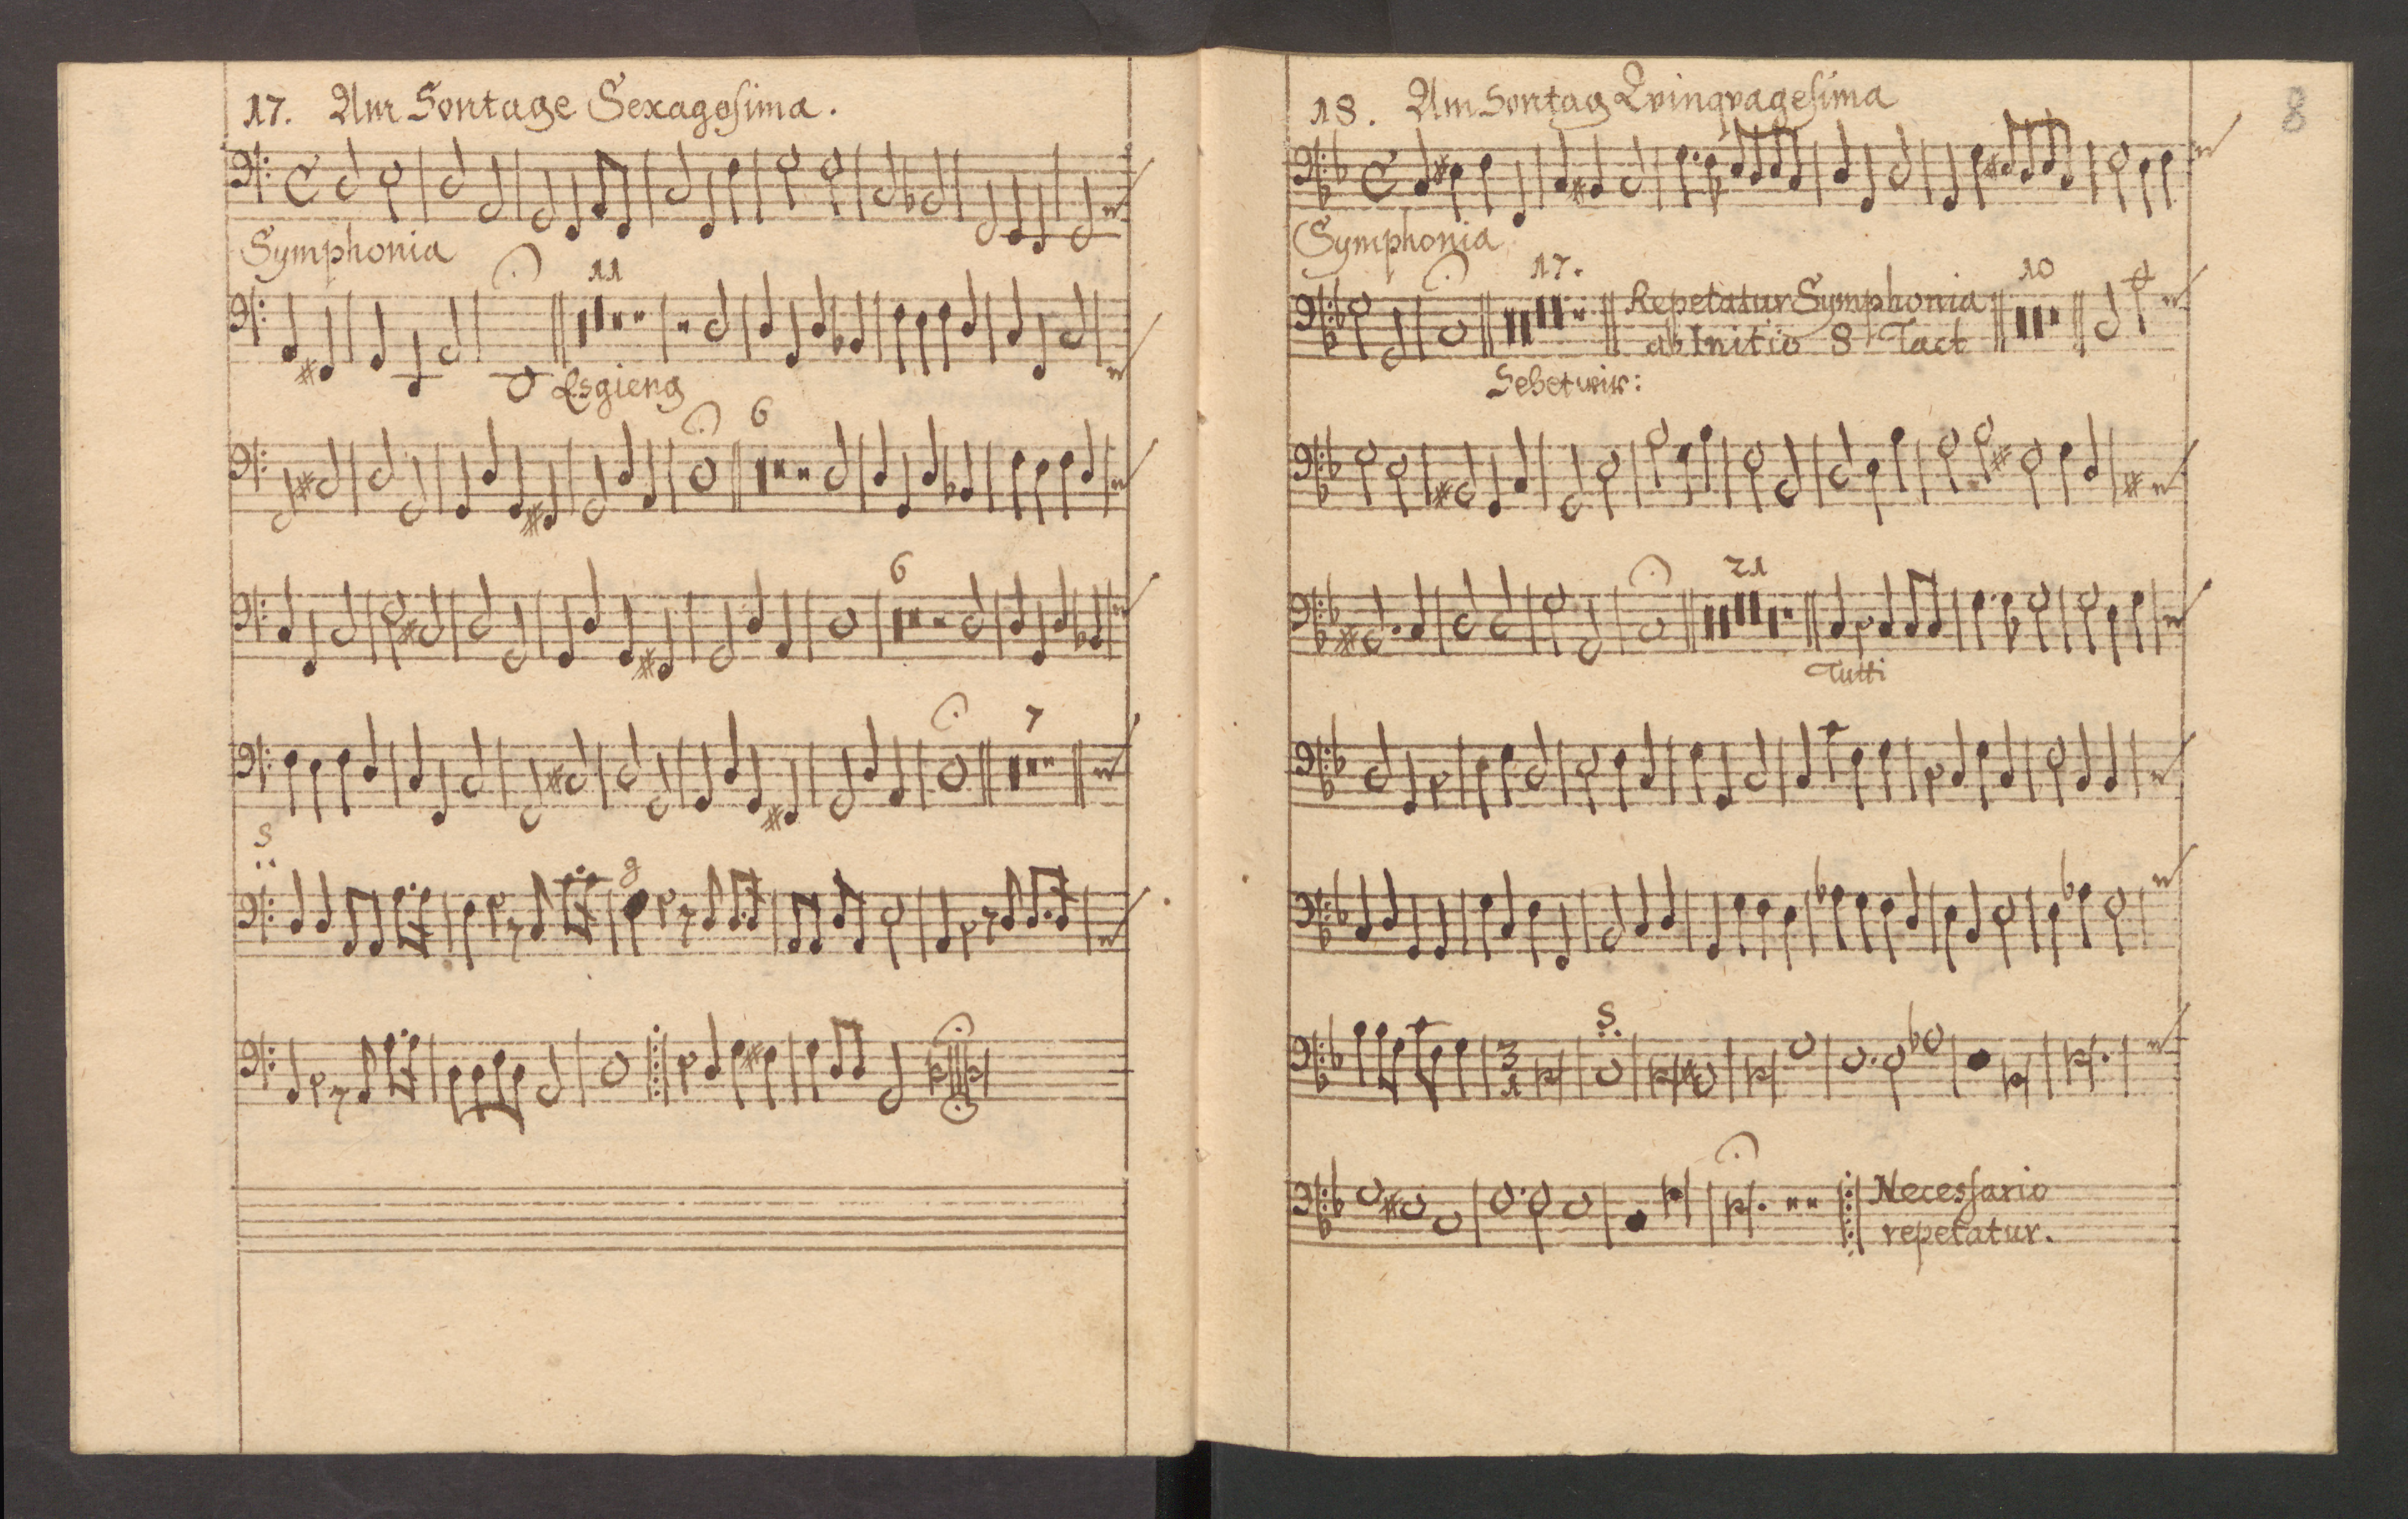 17. Am Sontage Sexagesima.
Symphonia
11
Es gieng
6
6
7
S
g
18. Am Sontag Qvinqvagesima
8
Symphonia
17.
Repetatur Symphonia
ab Initio 8 Tact
10
Sehet wir:
21
Tutti
S.
3
1
Necessario
repetatur.